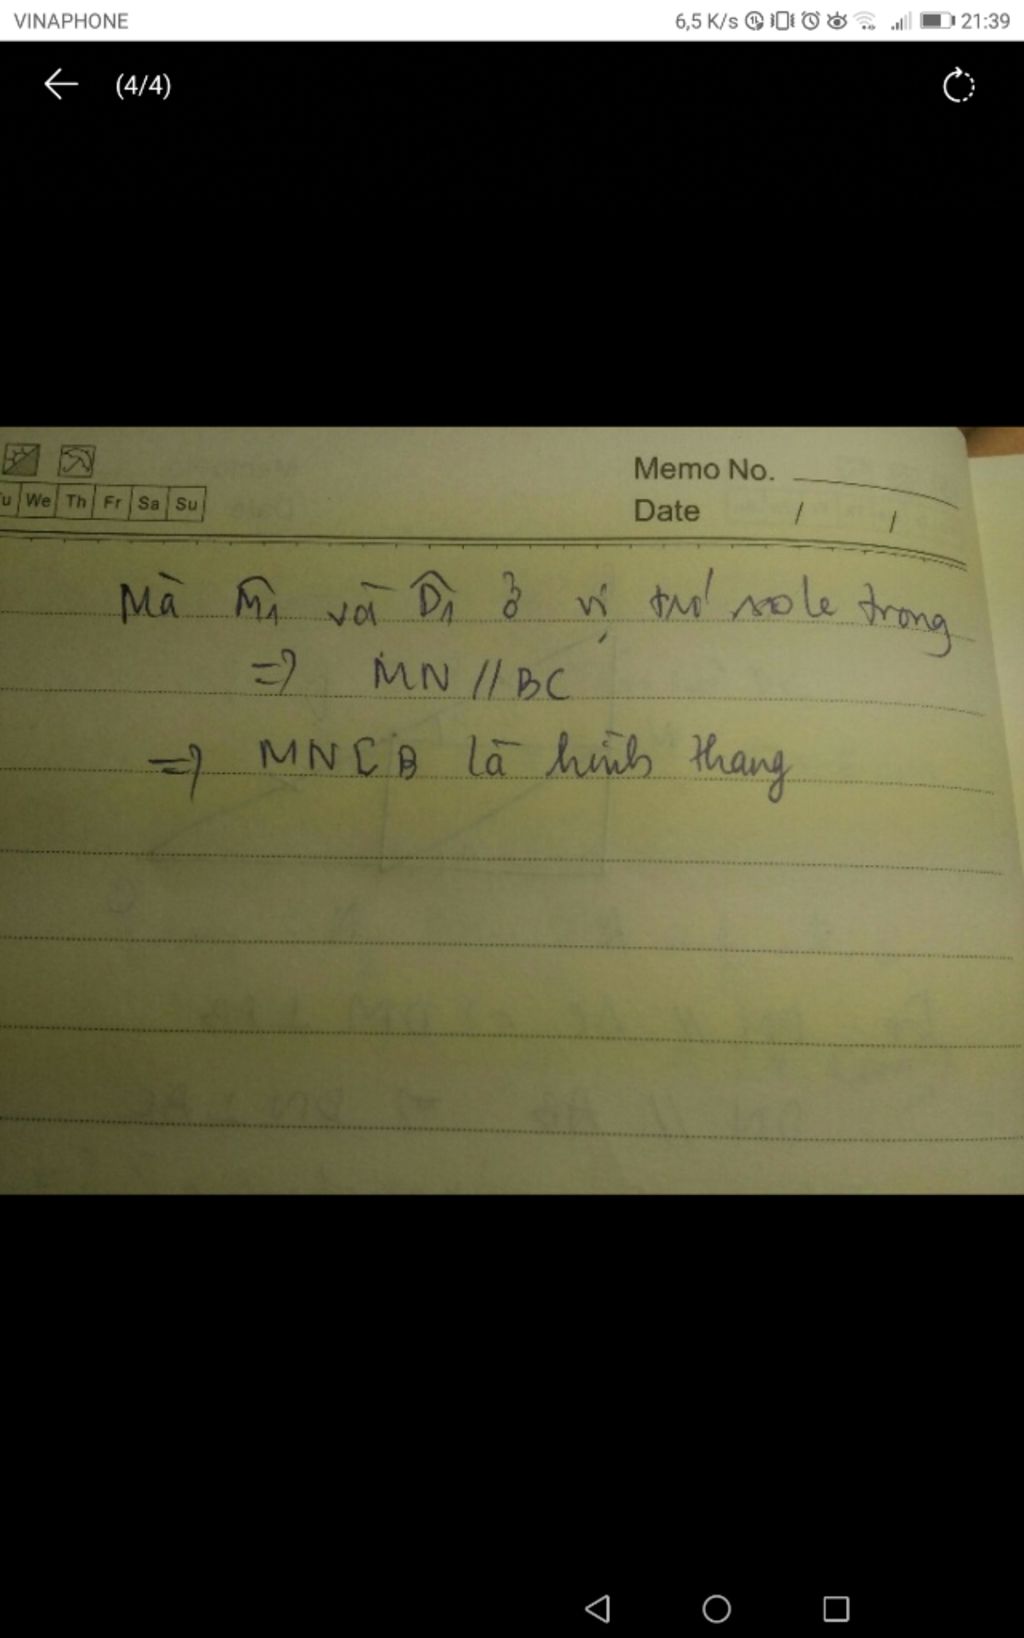 VINAPHONE 6,5 K/s 21:39
(4/4)
Memo No.
u We Th Fr Sa Su
Date / /
Mà M̂1 và D̂1 ở vị trí sole trong
=> MN // BC
=> MNCB là hình thang